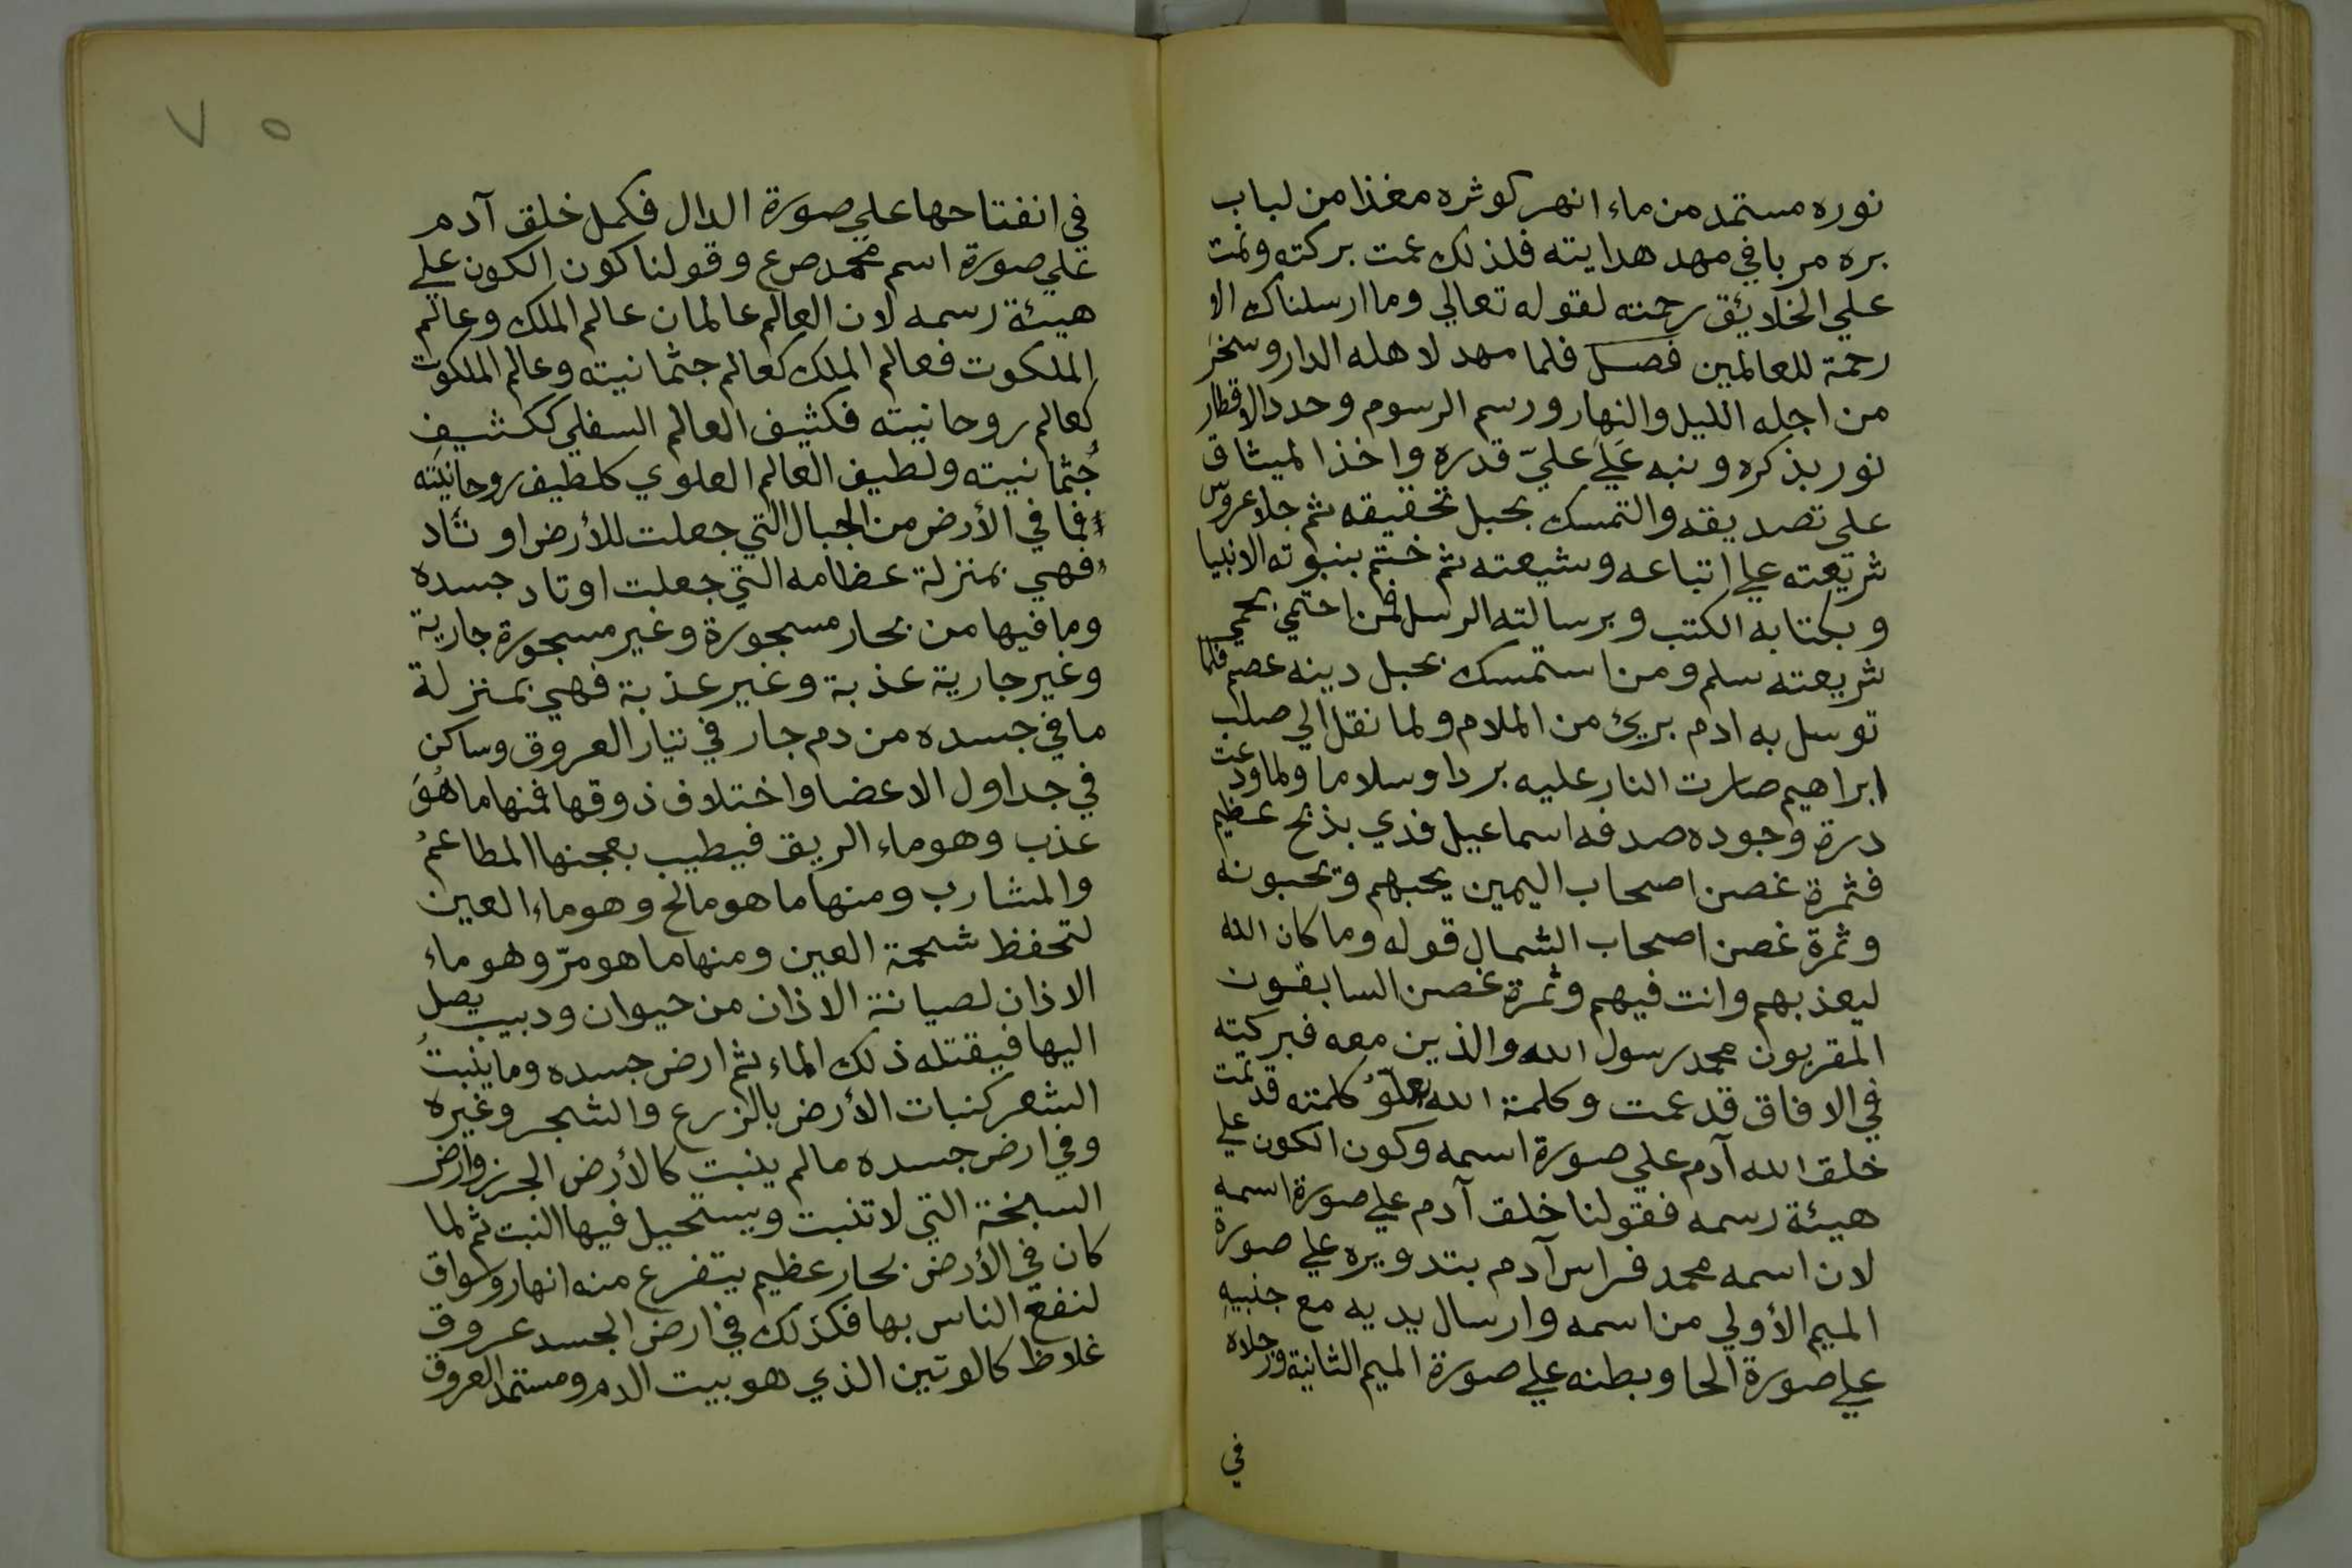 نوره مستمد من ماء انهر كوثره مغذا من لباب
بره مربا في مهد هدايته فلذلك عمت بركته ونمت
علي الخلائق رحمته لقوله تعالي وما ارسلناك الا
رحمة للعالمين فصل فلما مهد لاهله الدار وسخر
من اجله الليل والنهار ورسم الرسوم وحدد الاقطار
نور بذكره ونبه عَلَي عليّ قدره واخذ الميثاق
على تصديقه والتمسك بحبل تحقيقه ثم جلا عروس
شريعته علي اتباعه وشيعته ثم ختم بنبوته الانبيا
وبكتابه الكتب وبرسالته الرسل فمن احتمي بحمي
شريعته سلم ومن استمسك بحبل دينه عصم فلما
توسل به ادم بريئ من الملام ولما نقل الي صلب
ابراهيم صارت النار عليه بردا وسلاما ولما ودعت
درة وجوده صدفه اسماعيل فدي بذبح عظيم
فثمرة غصن اصحاب اليمين يحبهم ويحبونه
وثمرة غصن اصحاب الشمال قوله وما كان الله
ليعذبهم وانت فيهم وثمرة غصن السابقون
المقربون محمد رسول الله والذين معه فبركته
في الافاق قد عمت وكلمة الله بعلوُ كلمته قد تمت
خلق الله آدم علي صورة اسمه وكون الكون علي
هيئة رسمه فقولنا خلق آدم علي صورة اسمه
لان اسمه محمد فراس آدم بتدويره علي صورة
الميم الأولي من اسمه وارسال يديه مع جنبيه
علي صورة الحا وبطنه علي صورة الميم الثانية ورجلاه
في
٧٥
في انفتاحها علي صورة الدال فكمل خلق آدم
علي صورة اسم محمد صع وقولنا كون الكون علي
هيئة رسمه لان العالم عالمان عالم الملك وعالم
الملكوت فعالم الملك كعالم جثمانيته وعالم الملكوت
كعالم روحانيته فكثيف العالم السفلي ككثيف
جُثمانيته ولطيف العالم العلوي كلطيف روحانيته
فما في الأرض من الجبال التي جعلت للأرض اوتاد
فهي بمنزلة عظامه التي جعلت اوتاد جسده
وما فيها من بحار مسجورة وغير مسجورة جارية
وغير جارية عذبة وغير عذبة فهي بمنزلة
ما في جسده من دم جار في تيار العروق وساكن
في جداول الاعضا واختلاف ذوقها فمنها ما هُوَ
عذب وهو ماء الريق فيطيب بعجنها المطاعمُ
والمشارب ومنها ما هو مالح وهو ماء العين
لتحفظ شحمة العين ومنها ما هو مرّ وهو ماء
الاذان لصيانة الاذان من حيوان ودبيب يصل
اليها فيقتله ذلك الماء ثم ارض جسده وما ينبتُ
الشعر كنبات الأرض بالزرع والشجر وغيره
وفي ارض جسده ما لم ينبت كالأرض الجرز وارض
السبخة التي لا تنبت ويستحيل فيها النبت ثم لما
كان في الأرض بحار عظيم يتفرع منه انهار وسواق
لنفع الناس بها فكذلك في ارض الجسد عروق
غلاظ كالوتين الذي هو بيت الدم ومستمد العروق